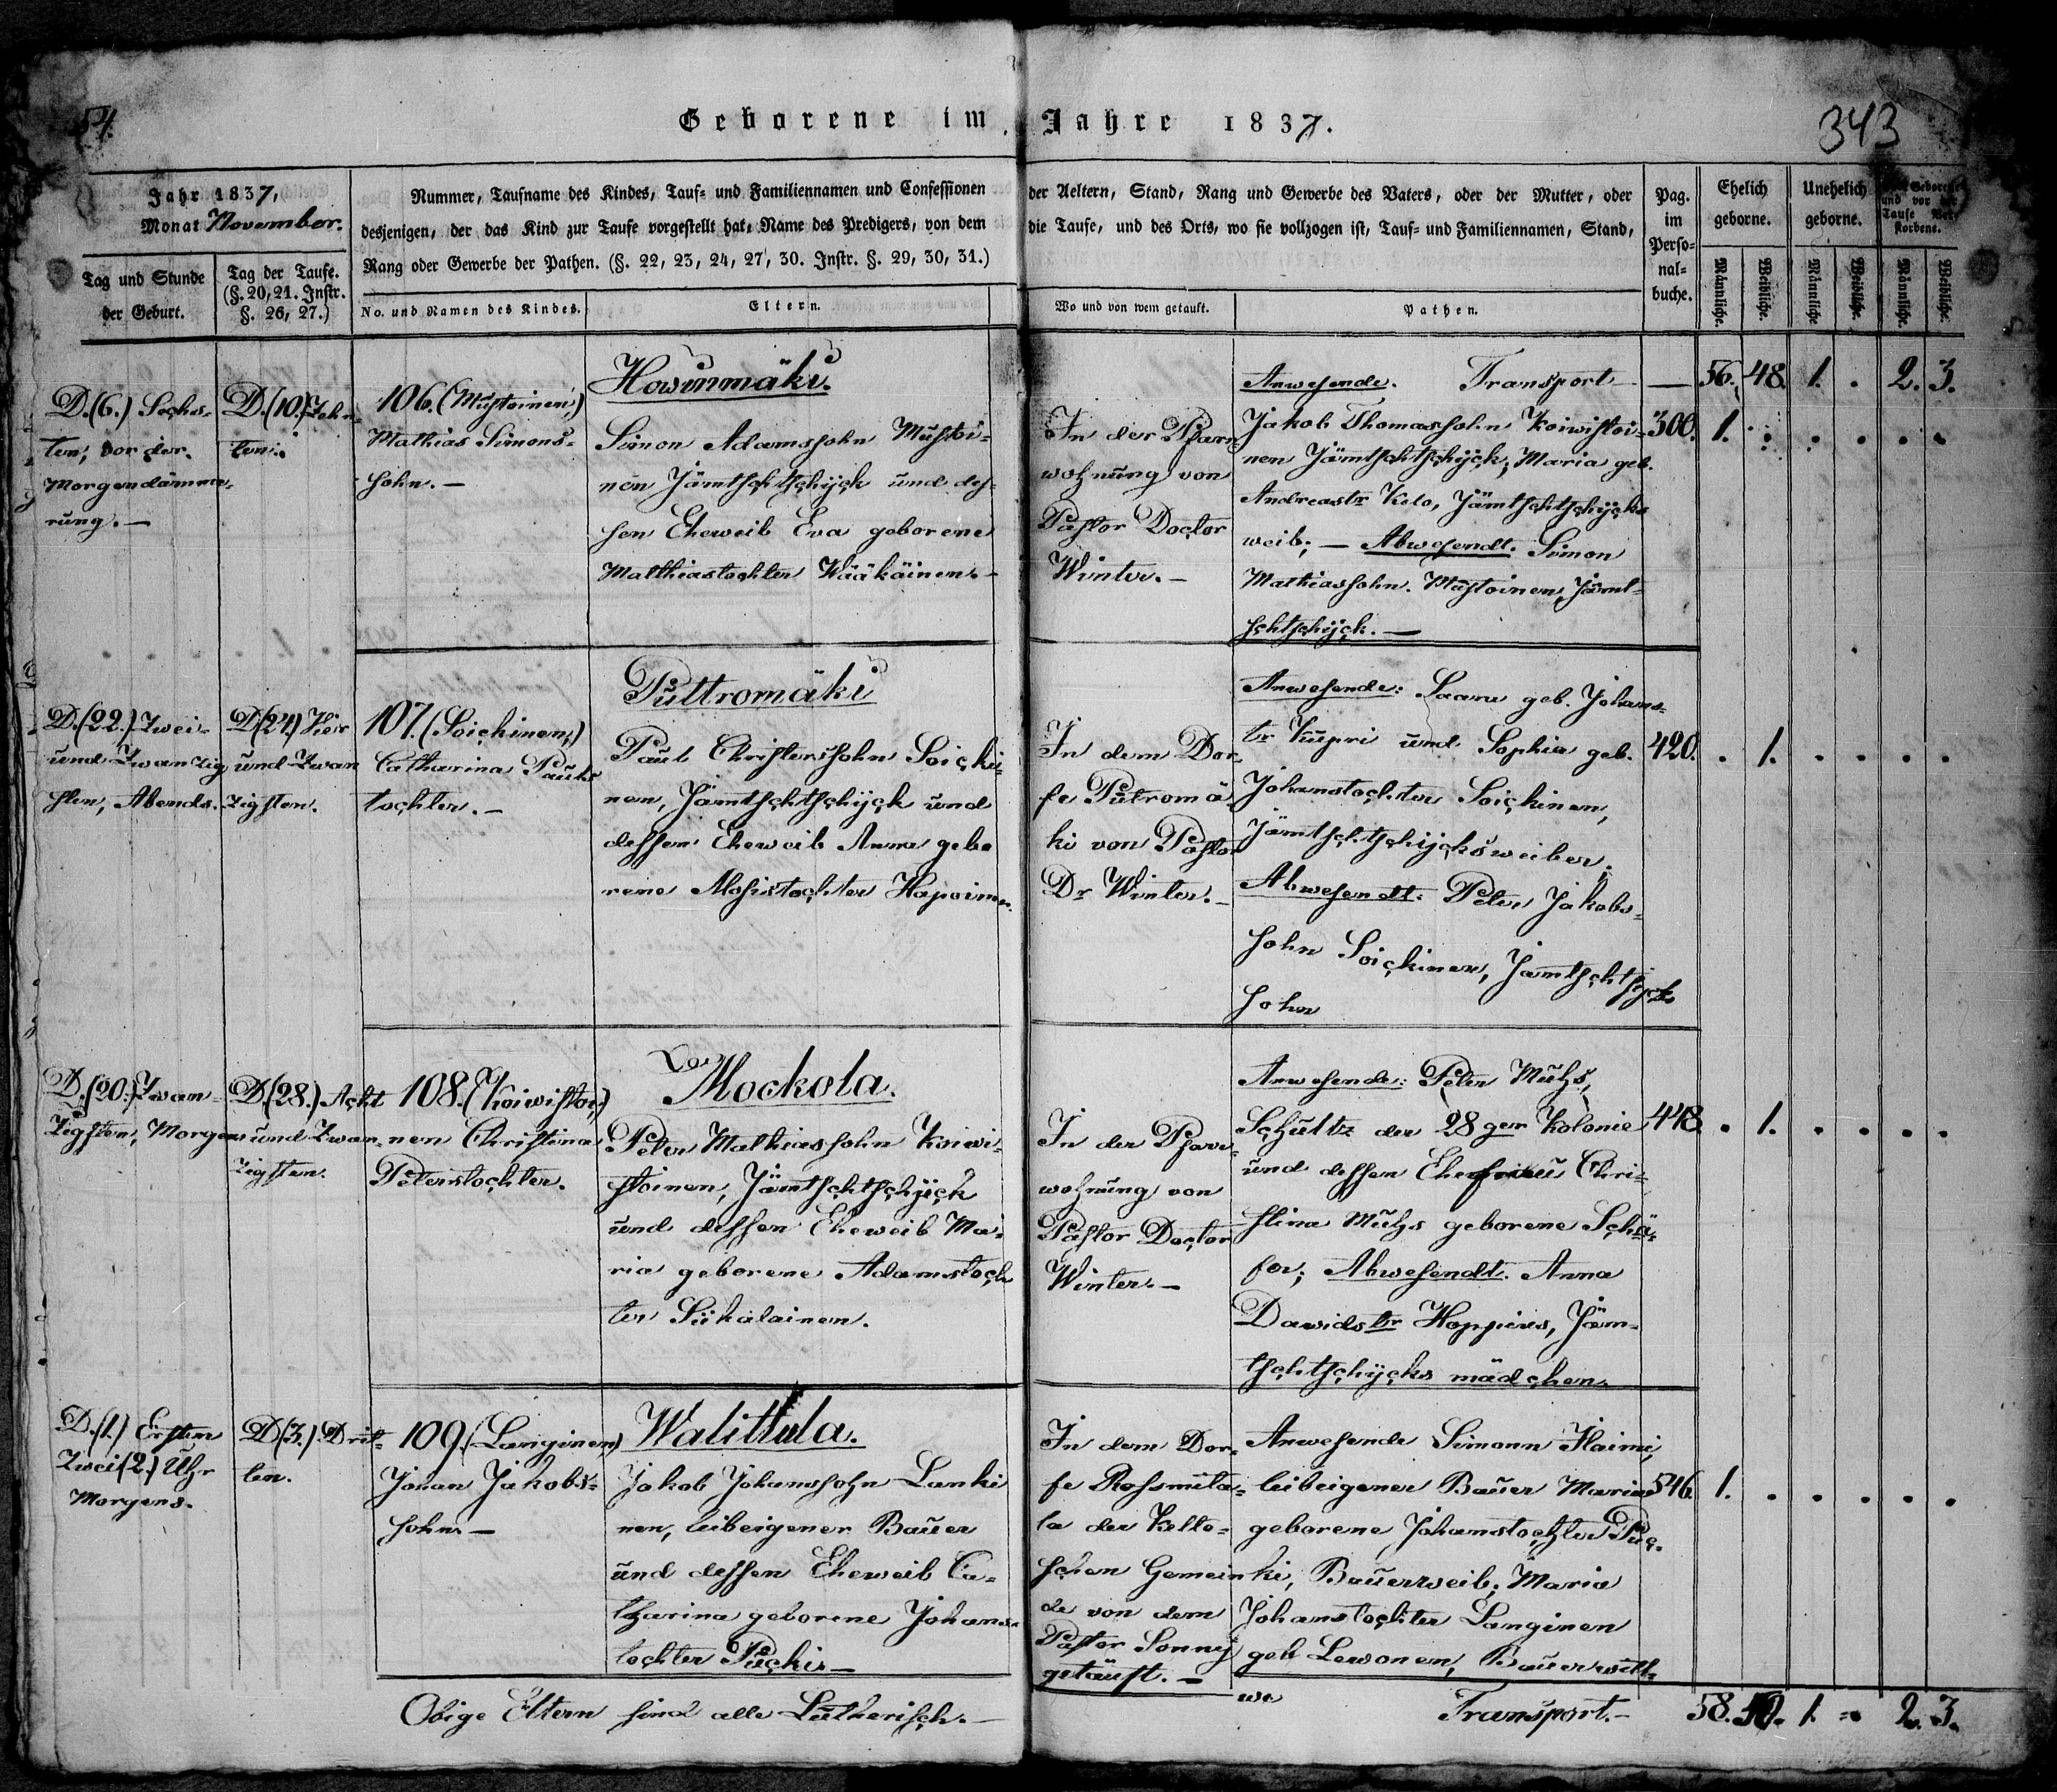 54.
Geborene im Jahre 1837.
343
Jahr 1837,
Monat November.
Tag und Stunde
der Geburt.
Tag der Taufe.
(§. 20, 21. Instr.
§. 26, 27.)
Nummer, Taufname des Kindes, Tauf= und Familiennamen und Confessionen der Aeltern, Stand, Rang und Gewerbe des Vaters, oder der Mutter, oder
desjenigen, der das Kind zur Taufe vorgestellt hat, Name des Predigers, von dem die Taufe, und des Orts, wo sie vollzogen ist, Tauf= und Familiennamen, Stand,
Rang oder Gewerbe der Pathen. (§. 22, 23, 24, 27, 30. Instr. §. 29, 30, 31.)
No. und Namen des Kindes.
Eltern.
Wo und von wem getauft.
Pathen.
Pag.
im
Perso=
nal=
buche.
Ehelich
geborne.
Unehelich
geborne.
Geborene
und vor der
Taufe Ver=
storbene.
Männliche.
Weibliche.
Männliche
Weibliche.
Männliche.
Weibliche.
Transport — 56. 48. 1. . 2. 3.
D. (6.) Sechs=
ten, vor der
Morgendämme=
rung. —
D. (10.) Zehn=
ten.
106. (Mustoinen,)
Mathias Simons=
sohn. —
Howinmäki.
Simon Adamssohn Mustoi=
nen Jämtschtschijck und des=
sen Eheweib Eva geborene
Matthiastochter Wääkäinen. —
In der Pfarr
wohnung von
Pastor Doctor
Winter. —
Anwesende.
Jakob Thomassohn Koiwistoi=
nen Jämtschtschijck, Maria geb.
Andreastr Kolo, Jämtschtschijcks
weib; — Abwesendt. Simon
Mathiassohn Mustoinen, Jämt=
schtschijck. —
300. 1. . . . . .
D. (22.) Zwei=
und Zwanzig
sten, Abends.
D. (24.) Vier
und Zwan
zigsten.
107. (Soickinen,)
Catharina Pauls
tochter. —
Puttromäki
Paul Christerssohn Soicki=
nen, Jämtschtschijck und
dessen Eheweib Anna gebo
rene Mosistochter Hapoinen.
In dem Dor=
fe Putromä=
ki von Pastor
Dr Winter. —
Anwesende: Saara geb. Johans=
tr Kupri und Sophia geb.
Johanstochter Soickinen,
Jämtschtschijcksweiber.
Abwesendt: Peter Jakobs=
sohn Soickinen, Jämtschtschijcks
sohn
420. . 1. . . . .
D. (20.) Zwan=
zigsten, Morgens
D. (28.) Acht
und Zwan=
zigsten.
108. (Koiwistoi,)
nen Christina
Peterstochter.
Mockola.
Peter Mathiassohn Koiwi=
stoinen, Jämtschtschijck
und dessen Eheweib Ma=
ria geborene Adamstoch
ter Sükalainen.
In der Pfarr=
wohnung von
Pastor Doctor
Winter. —
Anwesende: Peter Muhs,
Schultz der 28ger Kolonie
und dessen Ehefrau Chri=
stina Muhs geborene Schä=
fer; Abwesendt. Anna
Davidstr Hoppius, Jäm=
tschtschijcks mädchen.
448. . 1. . . . .
D. (1.) Ersten
Zwei (2.) Uhr
Morgens.
D. (3.) Drit=
ten.
109. (Langinen)
Johan Jakobs=
sohn —
Walittula.
Jakob Johanssohn Lanki
nen, leibeigener Bauer
und dessen Eheweib Ca=
tharina geborene Johans=
tochter Pucki —
In dem Dor=
fe Rosmita=
la der Kelto=
schen Gemein
de von dem
Pastor Sonny
getauft. —
Anwesende Simonn Haimi,
leibeigener Bauer Maria
geborene Johanstochter Puc=
ki, Bauerweib; Maria
Johanstochter Langinen
geb Lewonen, Bauerwitt=
we
546. 1. . . . . .
Obige Eltern sind alle Lutherisch. —
Transport. — 58. 50. 1. = 2. 3.